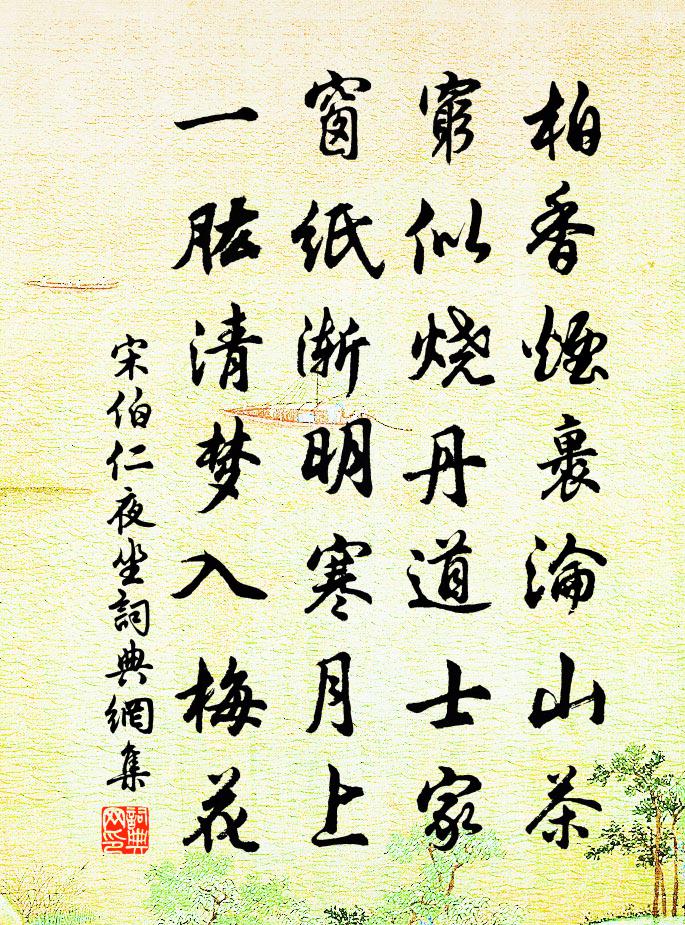 柏香煙裹淪山茶
窮似烧丹道士家
窗紙渐明寒月上
一肱清梦入梅花
宋伯仁夜坐詞典網集
詞典
网印